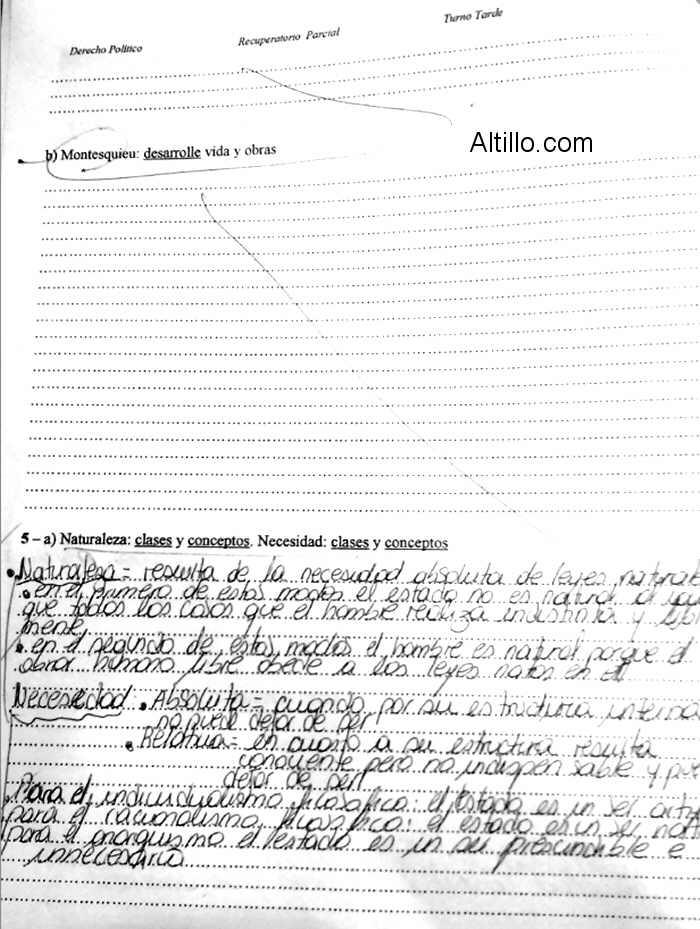 Derecho Político Recuperatorio Parcial Turno Tarde
Altillo.com
b) Montesquieu: desarrolle vida y obras
5 – a) Naturaleza: clases y conceptos. Necesidad: clases y conceptos
• Naturaleza = resulta de la necesidad absoluta de leyes natural
• en el primero de estos modos el estado no es natural
que todos los casos que el hombre realiza indistinta y
mente,
• en el segundo de estos modos el hombre es natural porque el
obrar humano libre obede a las leyes en el
Necesidad • Absoluta = cuando por su estructura interna
no puede dejar de ser
• Relativa = en cuanto a su estructura resulta
pero no indispensable y
dejar de ser
• Para el individualismo filosófico: el Estado es un ser
para el racionalismo filosófico: el estado es un ser
para el anarquismo el estado es un ser prescindible e
innecesario